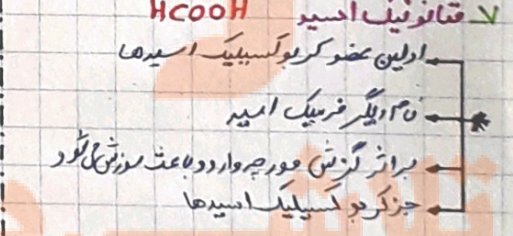 ۷ متانوئیک اسید HCOOH
اولین عضو کربوکسیلیک اسیدها
نام دیگر فرمیک اسید
بر اثر گزش مورچه وارد و باعث سوزش می‌شود
جز کربوکسیلیک اسیدها